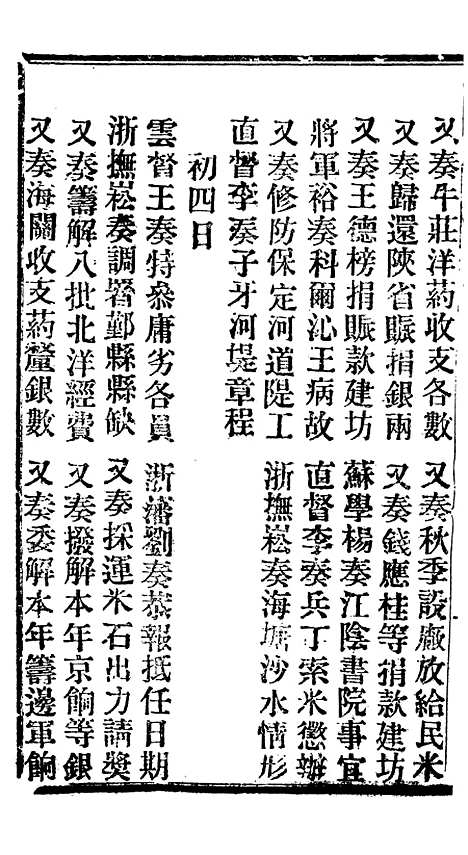 又奏牛莊洋葯收支各數　又奏秋季設廠放給民米
又奏歸還陝省賑捐銀兩　又奏錢應桂等捐款建坊
又奏王德榜捐賑款建坊　蘇學楊奏江陰書院事宜
將軍裕奏科爾沁王病故　直督李奏兵丁索米懲辦
又奏修防保定河道隄工　浙撫崧奏海塘沙水情形
直督李奏子牙河堤章程
初四日
雲督王奏特叅庸劣各員　浙藩劉奏恭報抵任日期
浙撫崧奏調署鄞縣縣缺　又奏採運米石出力請奬
又奏籌解八批北洋經費　又奏撥解本年京餉等銀
又奏海關收支葯釐銀數　又奏委解本年籌邊軍餉